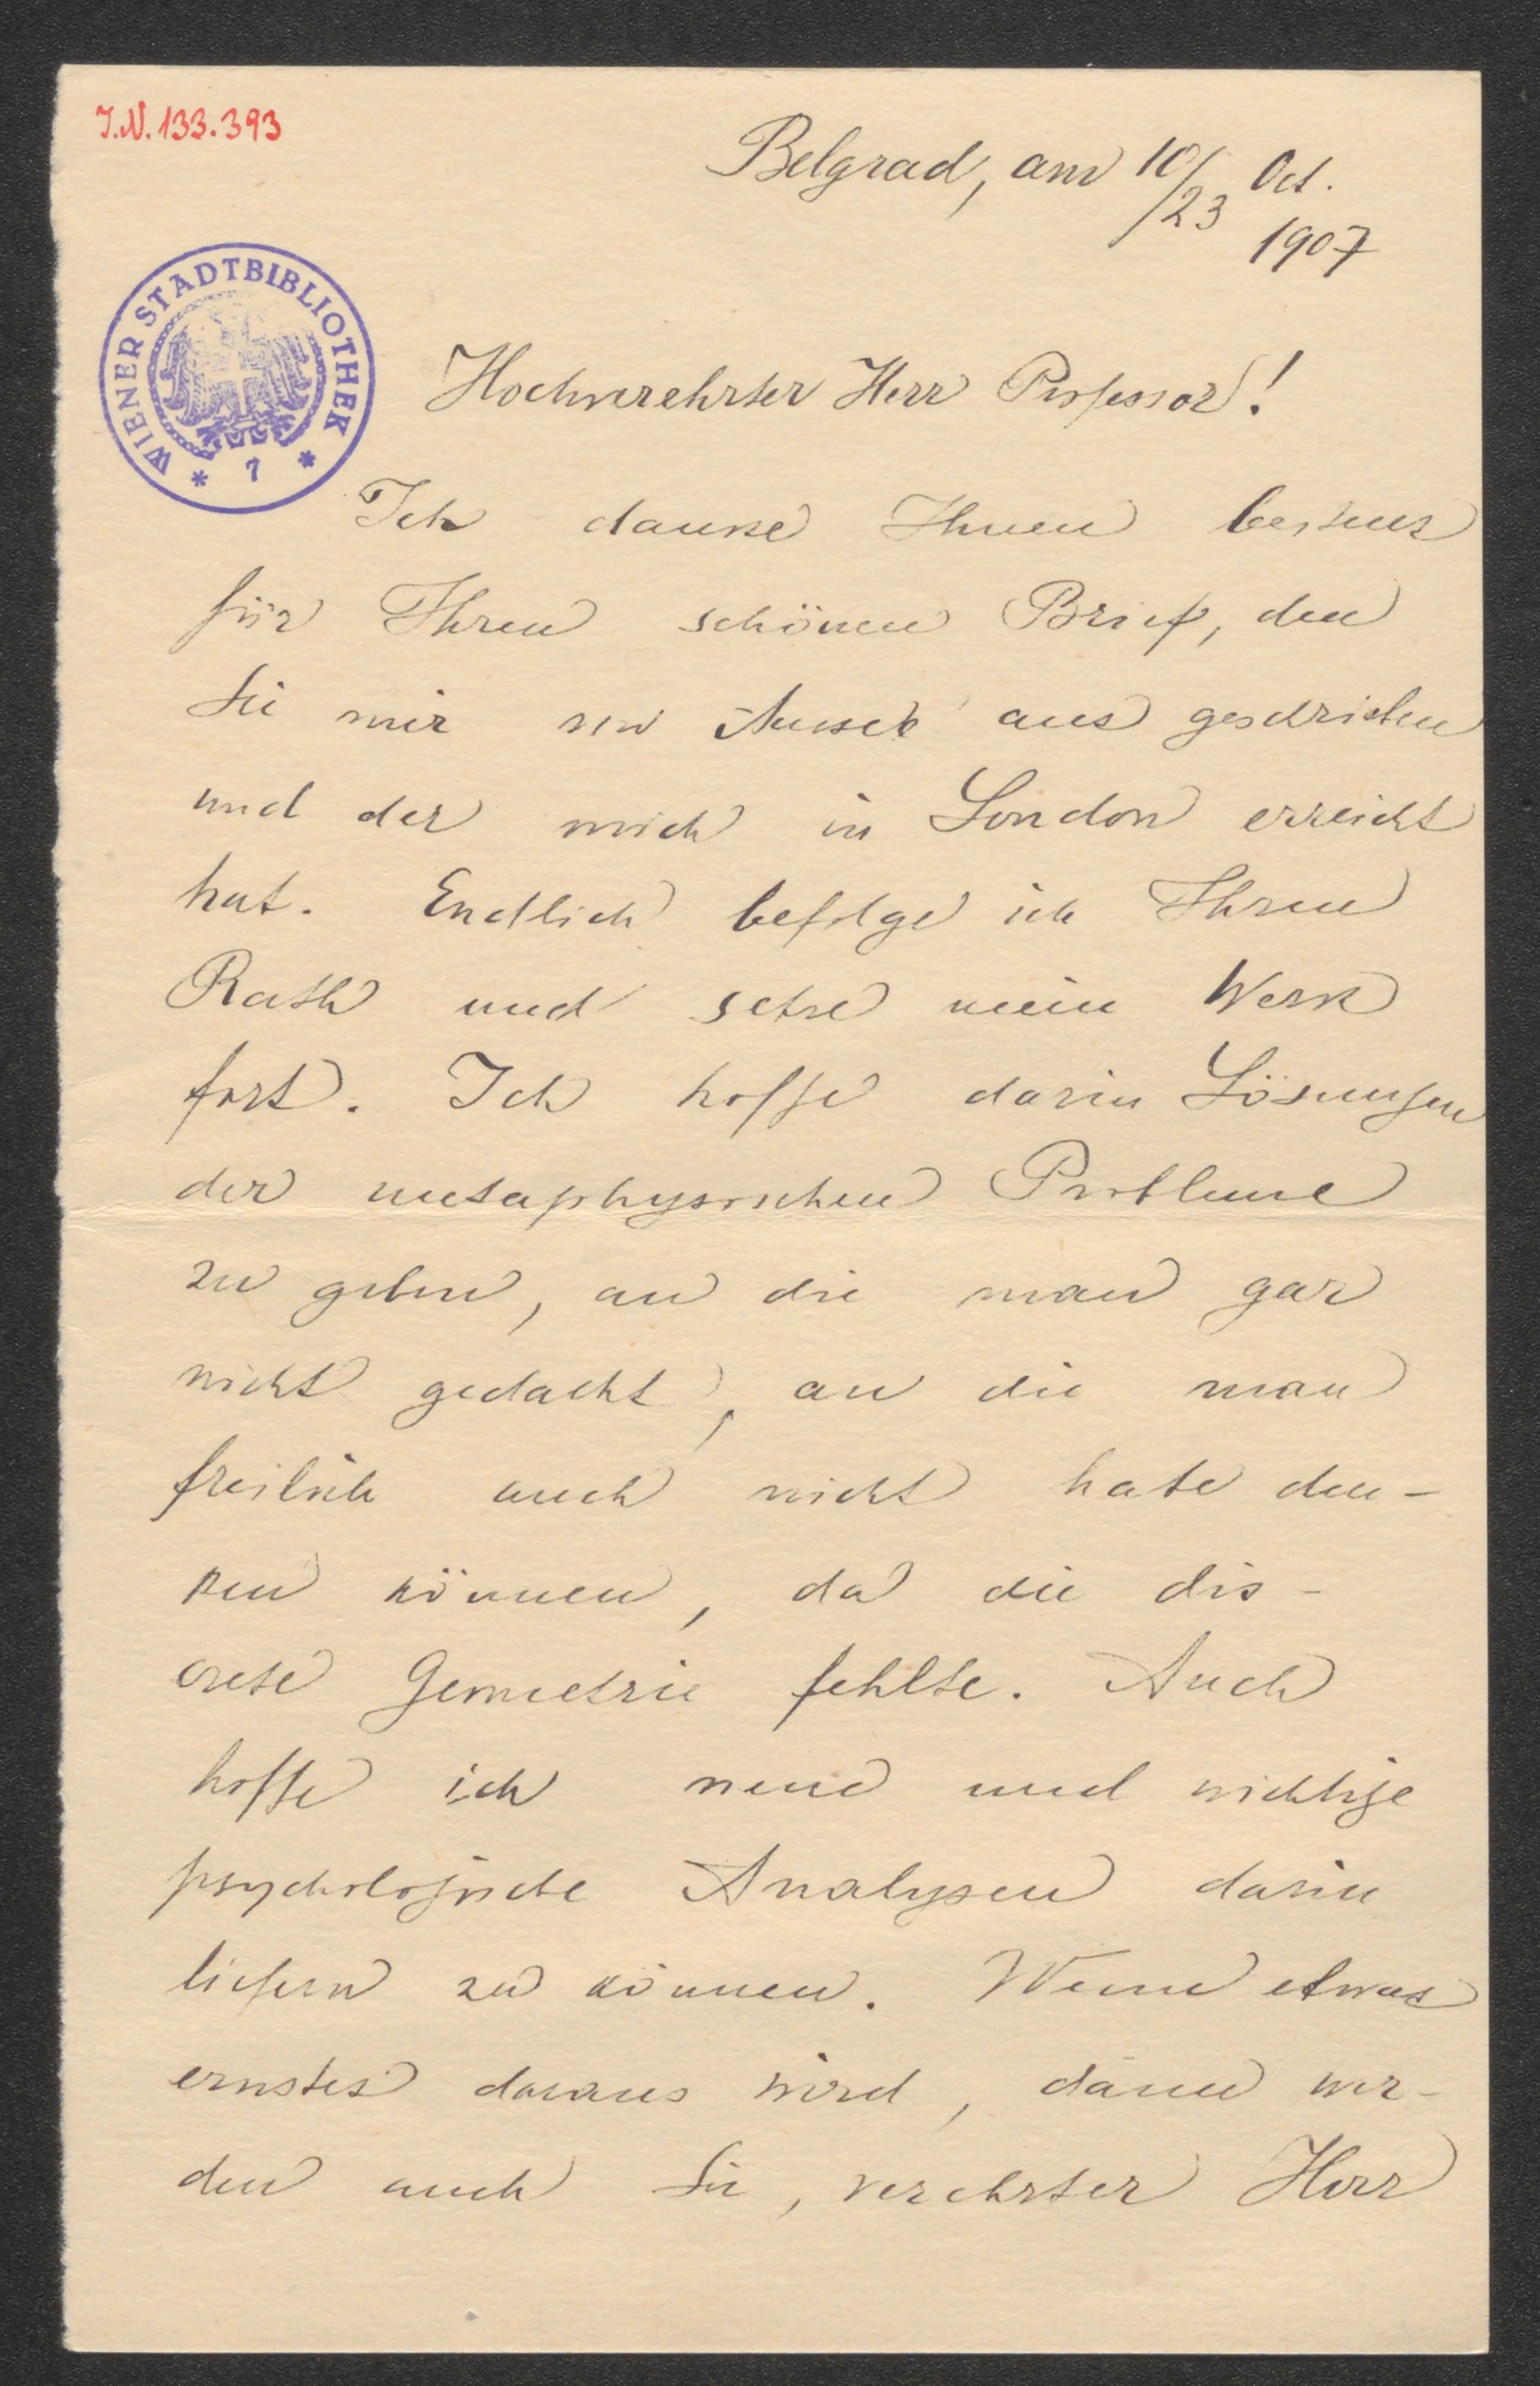 J.N. 133.393
Belgrad, am 10/23 Oct.
1907
WIENER STADTBIBLIOTHEK
* 7 *
Hochverehrter Herr Professor!
Ich danke Ihnen bestens
für Ihren schönen Brief, den
Sie mir von Aussee aus geschrieben
und der mich in London erreicht
hat. Endlich befolge ich Ihren
Rath und setze mein Werk
fort. Ich hoffe darin Lösungen
der metaphysischen Probleme
zu geben, an die man gar
nicht gedacht, an die man
freilich auch nicht habe den-
ken können, da die dis-
crete Geometrie fehlte. Auch
hoffe ich neue und wichtige
psychologische Analysen darin
liefern zu können. Wenn etwas
ernstes daraus wird, dann wer-
den auch Sie, verehrter Herr